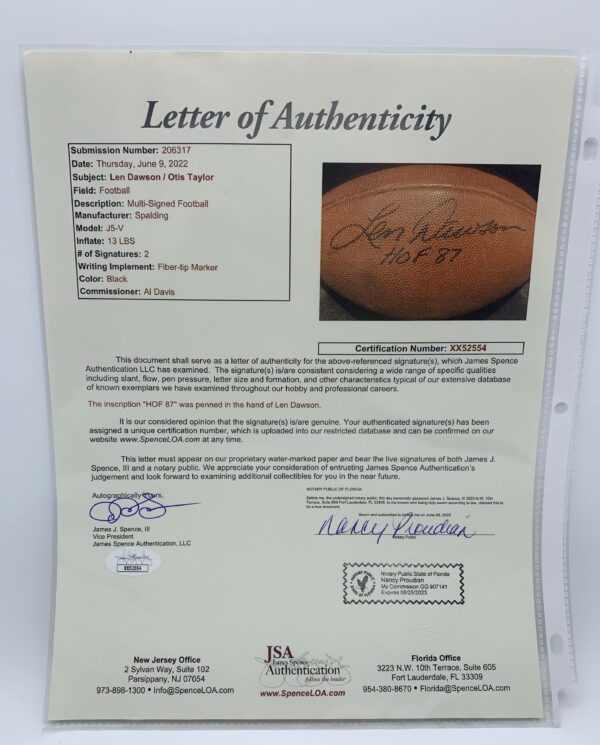 Letter of Authenticity
Submission Number: 206317
Date: Thursday, June 9, 2022
Subject: Len Dawson / Otis Taylor
Field: Football
Description: Multi-Signed Football
Manufacturer: Spalding
Model: J5-V
Inflate: 13 LBS
# of Signatures: 2
Writing Implement: Fiber-tip Marker
Color: Black
Commissioner: Al Davis
Len Dawson
HOF 87
Certification Number: XX52554
This document shall serve as a letter of authenticity for the above-referenced signature(s), which James Spence
Authentication LLC has examined. The signature(s) is/are consistent considering a wide range of specific qualities
including slant, flow, pen pressure, letter size and formation, and other characteristics typical of our extensive database
of known exemplars we have examined throughout our hobby and professional careers.
The inscription "HOF 87" was penned in the hand of Len Dawson.
It is our considered opinion that the signature(s) is/are genuine. Your authenticated signature(s) has been
assigned a unique certification number, which is uploaded into our restricted database and can be confirmed on our
website www.SpenceLOA.com at any time.
This letter must appear on our proprietary water-marked paper and bear the live signatures of both James J.
Spence, III and a notary public. We appreciate your consideration of entrusting James Spence Authentication's
judgement and look forward to examining additional collectibles for you in the near future.
Autographically Yours,
James J. Spence, III
Vice President
James Spence Authentication, LLC
XX52554
NOTARY PUBLIC OF FLORIDA
Before me, the undersigned notary public, this day personally appeared James J. Spence, III 3223 N.W. 10th
Terrace, Suite 605 Fort Lauderdale, FL 33309, to me known who being duly sworn according to law,
be a true document.
Sworn and subscribed to before me on June 09, 2022
Nancy Proudian
Notary Public
Notary Public State of Florida
Nancy Proudian
My Commission GG 907141
Expires 08/25/2023
New Jersey Office
2 Sylvan Way, Suite 102
Parsippany, NJ 07054
973-898-1300 • Info@SpenceLOA.com
JSA
James Spence
Authentication
follow the leader
www.SpenceLOA.com
Florida Office
3223 N.W. 10th Terrace, Suite 605
Fort Lauderdale, FL 33309
954-380-8670 • Florida@SpenceLOA.com